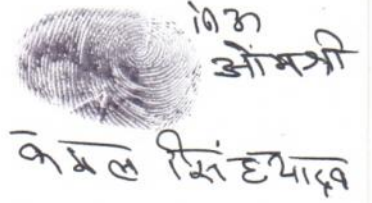 नि अ
ओमश्री
कमल सिंह यादव